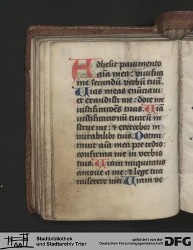 Adhesit pavimento
aīa mea: vivifica
me secundū verbū tuū.
Vias meas enūtiavi
et exaudisti me: doce me
iustificatiōes tuas. Viā
iustificationū tuarū in
strue me: et exercebor in
mirabilibus tuis. Dormi
tavit aīa mea pre tedio:
confirma me in verbis
tuis. Viam iniquitatis
amove a me: et lege tua
miserere mei. Viam ve
Stadtbibliothek
und Stadtarchiv Trier
gefördert von der
Deutschen Forschungsgemeinschaft